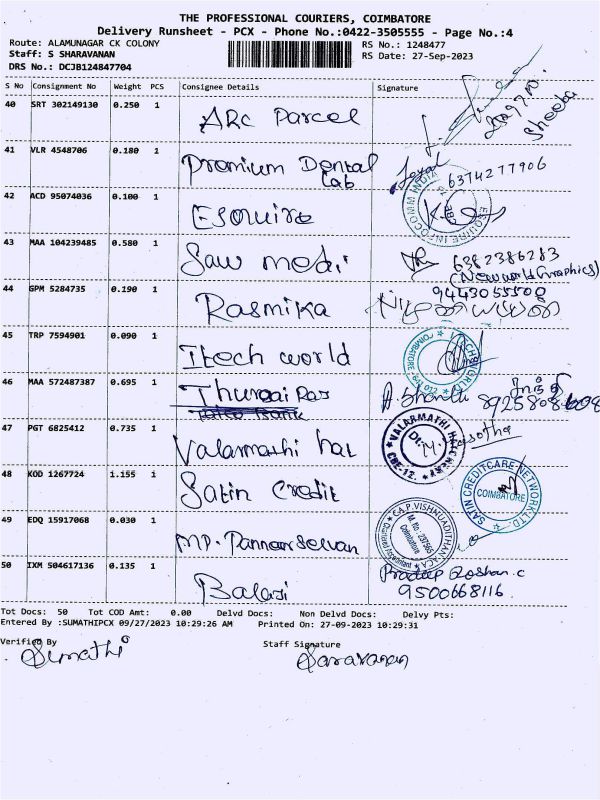 THE PROFESSIONAL COURIERS, COIMBATORE
Delivery Runsheet - PCX - Phone No.:0422-3505555 - Page No.:4
Route: ALAMUNAGAR CK COLONY
Staff: S SHARAVANAN
DRS No.: DCJB124847704
RS No.: 1248477
RS Date: 27-Sep-2023
S No Consignment No Weight PCS Consignee Details Signature
40 SRT 302149130 0.250 1 ARC Parcel
Sheeba
41 VLR 4548706 0.180 1 Premium Dental Lab
6374277906
42 ACD 95074036 0.100 1 Esquire
ESQUIRE INFOCOMM INDIA
43 MAA 104239485 0.580 1 Saw medi
6382386283
(Newworld Graphics)
44 GPM 5284735 0.190 1 Rasmika
9443055500
45 TRP 7594901 0.090 1 Itech world
COIMBATORE - 641 012
46 MAA 572487387 0.695 1 Thurai Raj
A. Shanthi 8925808608
47 PGT 6825412 0.735 1 Valarmathi hal
VALARMATHI
CBE-12.
Dr. M.
48 KOD 1267724 1.155 1 Satin Credit
SATIN CREDITCARE NETWORK LTD
COIMBATORE
49 EDQ 15917068 0.030 1 MP. Panneerselvan
CA P. VISHNUADITHAN ACA
M. No: 237565
Coimbatore
Chartered Accountant
50 IXM 504617136 0.135 1 Balaji
Pradeep Roshan.c
9500668116.
Tot Docs: 50 Tot COD Amt: 0.00 Delvd Docs: Non Delvd Docs: Delvy Pts:
Entered By :SUMATHIPCX 09/27/2023 10:29:26 AM Printed On: 27-09-2023 10:29:31
Verified By Staff Signature
Sumathi Saravanan